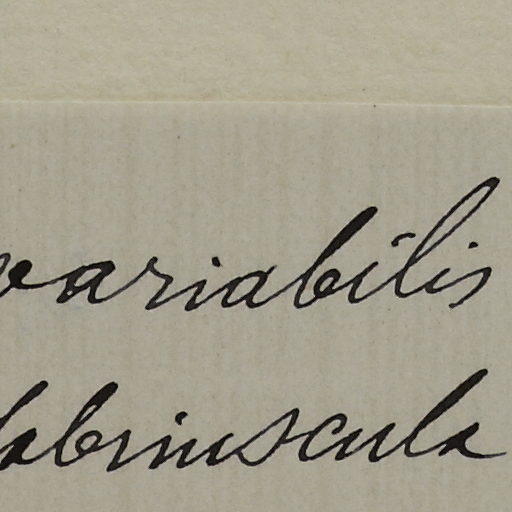 variabilis
labriuscula